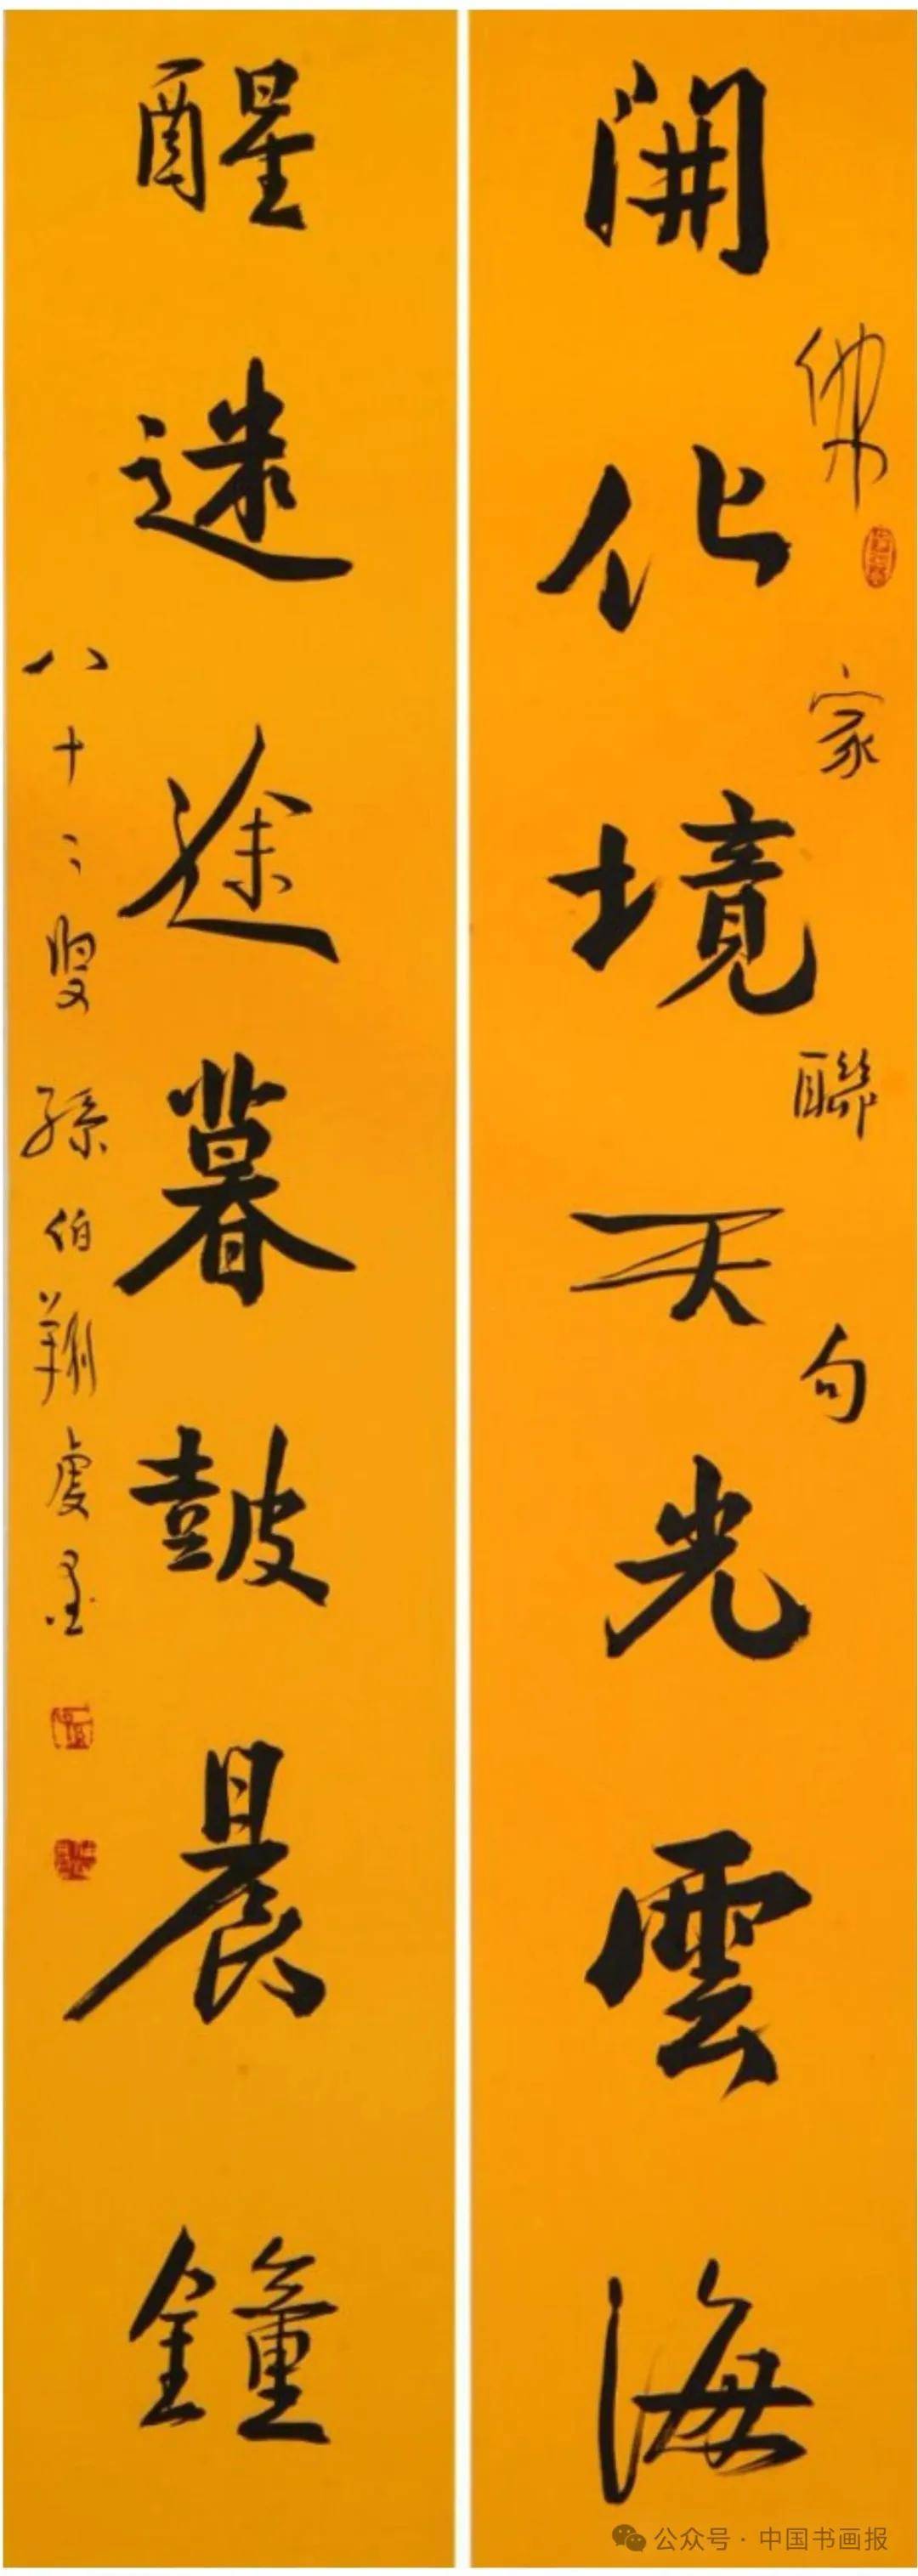 佛家聯句
開化境天光雲海
醒迷途暮鼓晨鐘
八十二叟孫伯翔虔墨
公众号·中国书画报